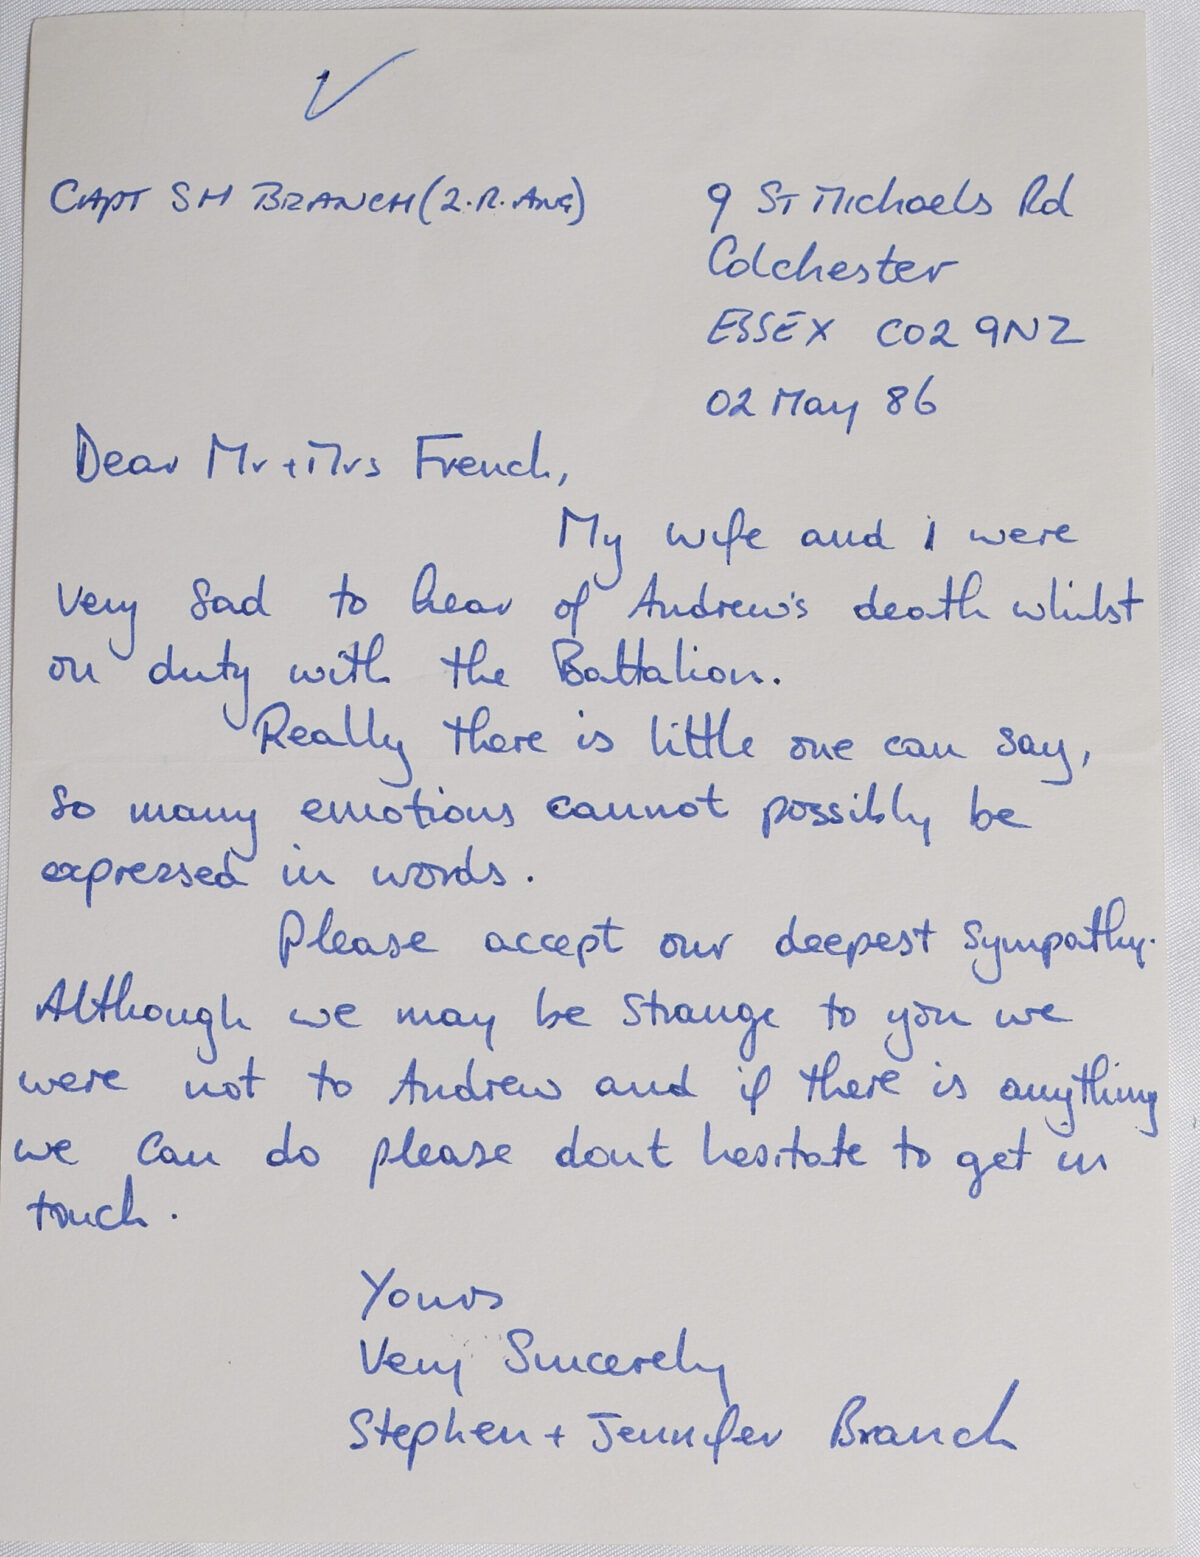 CAPT SH BRANCH (2.R.ANG)
9 ST Michaels Rd
Colchester
ESSEX CO2 9NZ
02 May 86
Dear Mr + Mrs French,
My wife and I were
very sad to hear of Andrew's death whilst
on duty with the Battalion.
Really there is little one can say,
so many emotions cannot possibly be
expressed in words.
Please accept our deepest sympathy.
Although we may be strange to you we
were not to Andrew and if there is anything
we can do please dont hesitate to get in
touch.
Yours
Very Sincerely
Stephen + Jennifer Branch